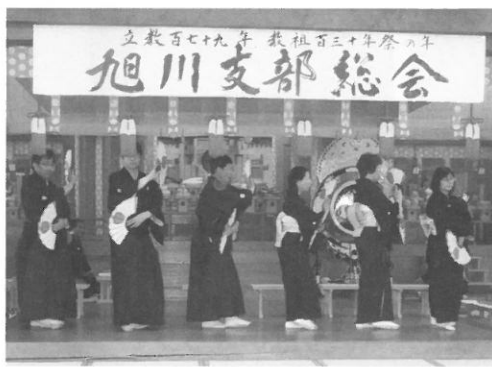 立教百七十九年 教祖百三十年祭の年
旭川支部総会